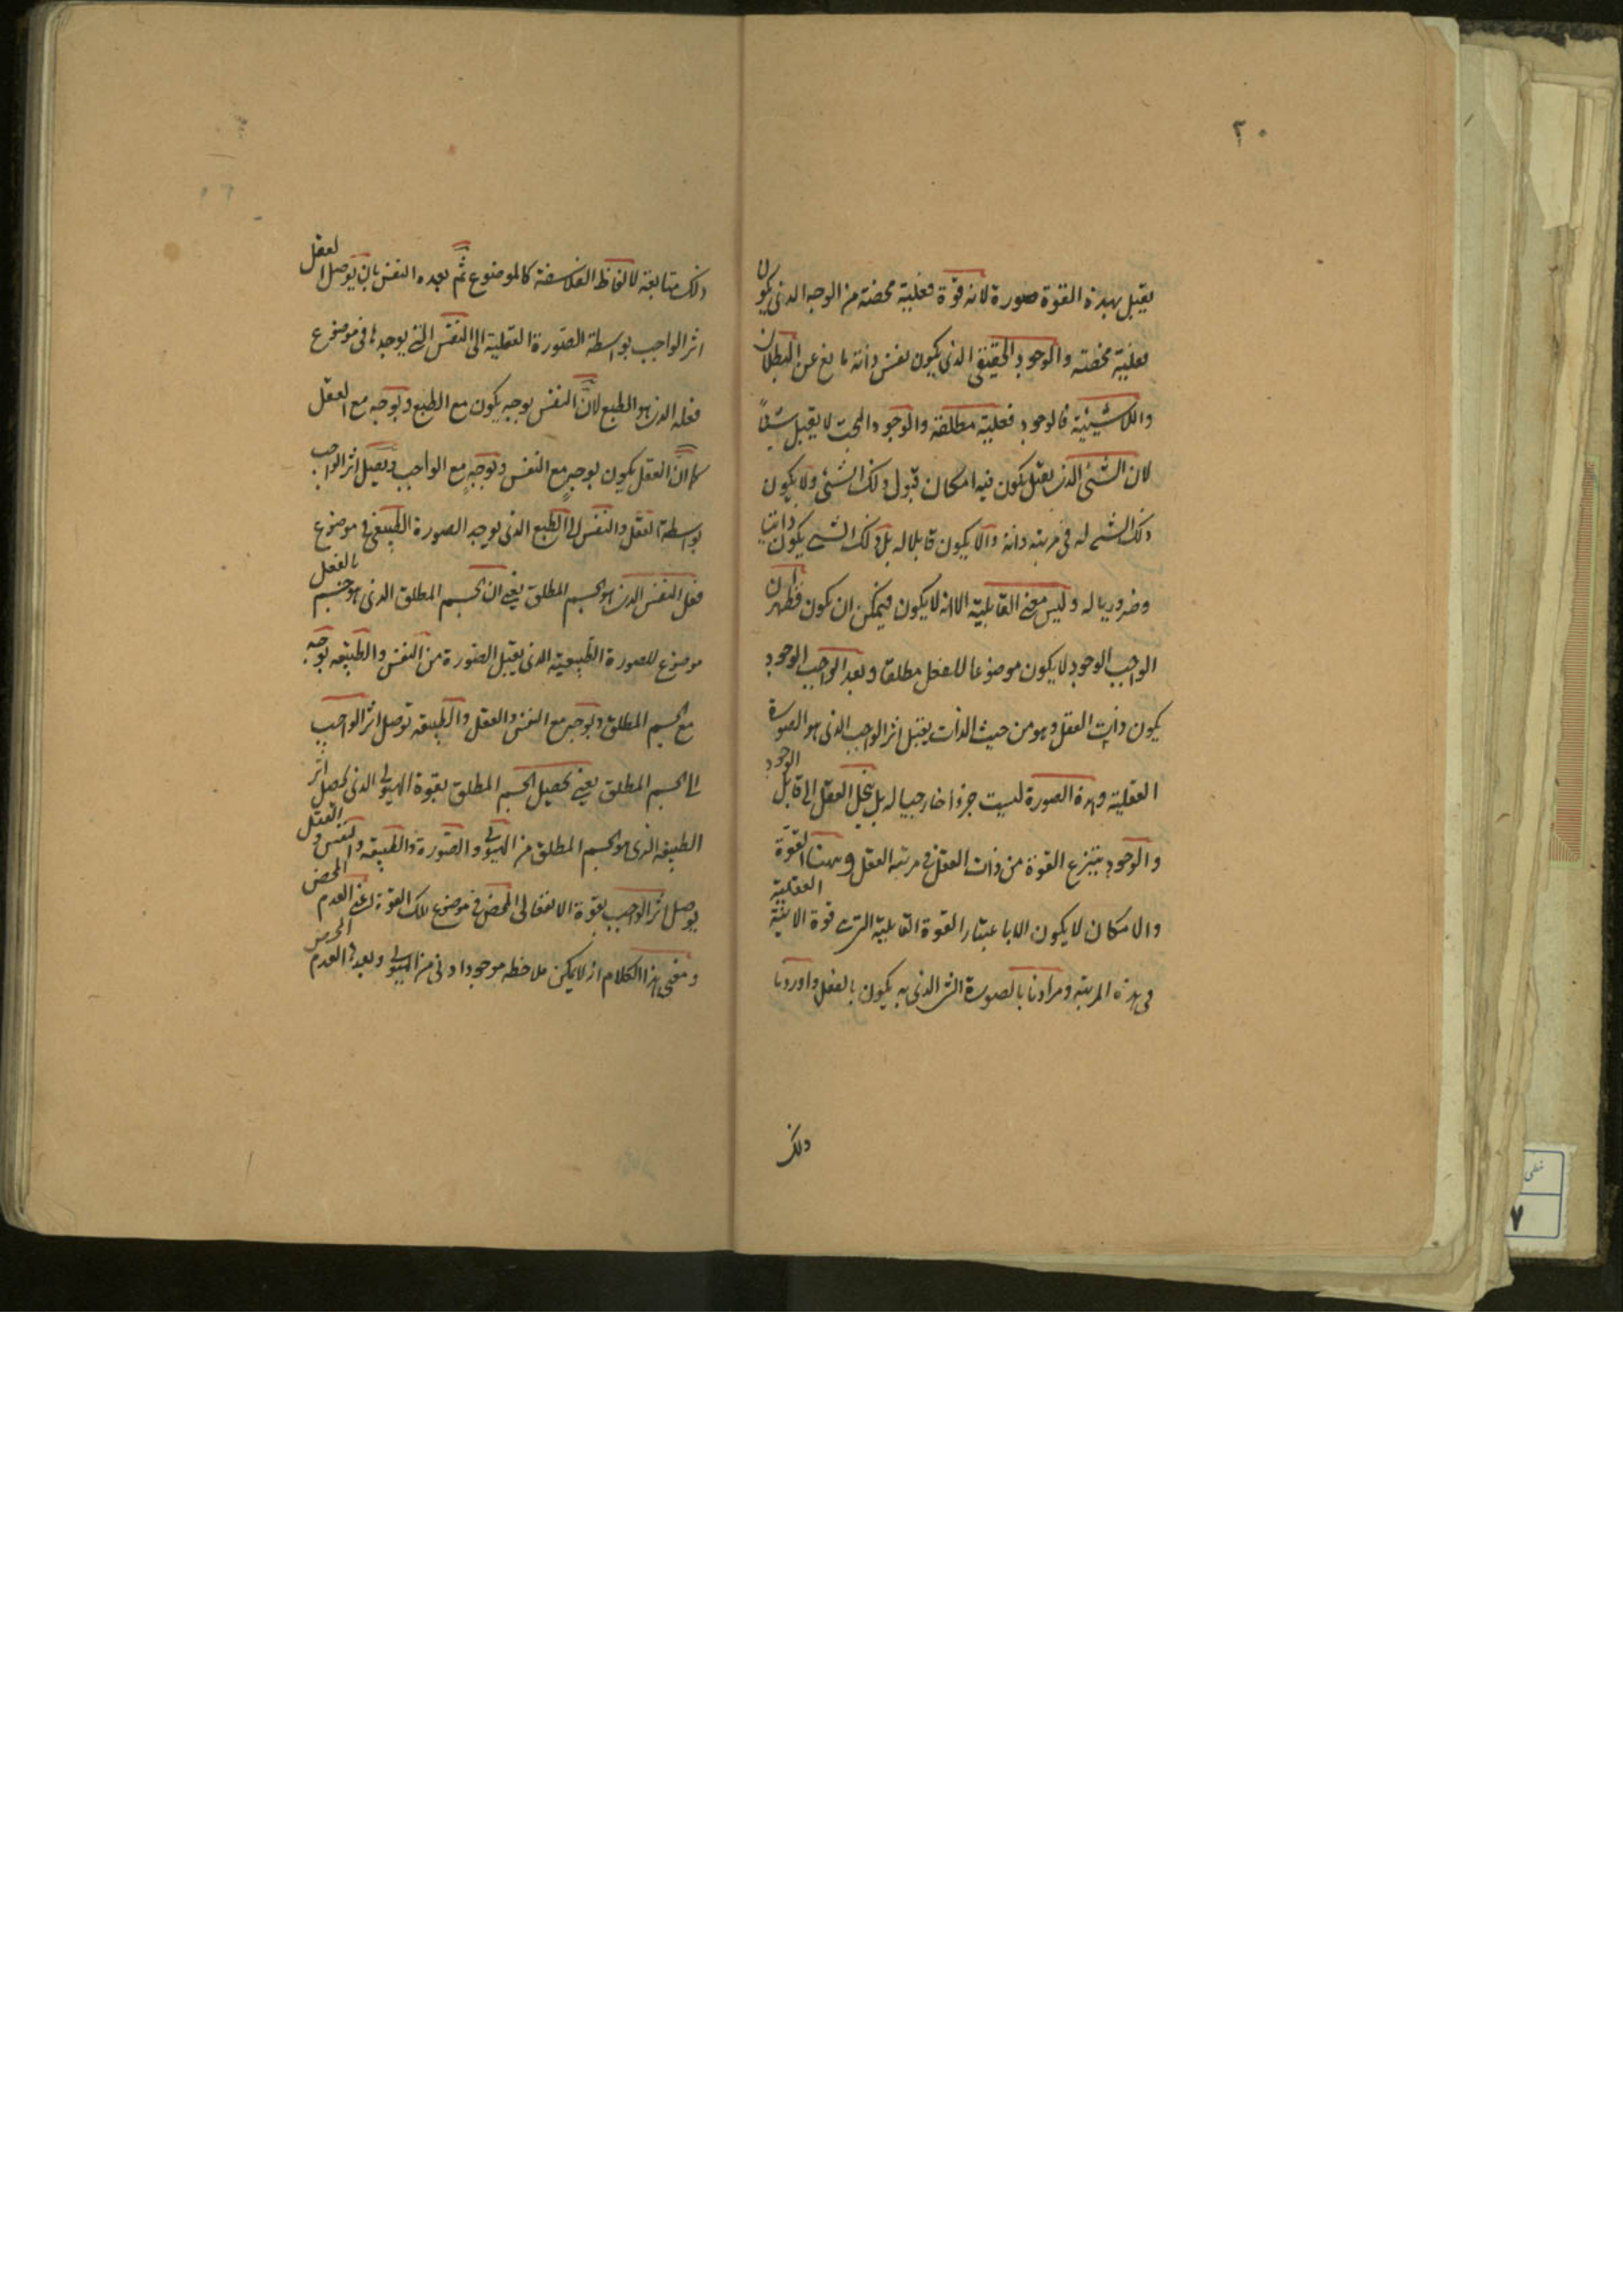 ٢٠
يقبل بهذه القوة صورة لانه قوة فعلية محضة من الوجه الذى يكون
بفعلية محضته والوجود الحقيقى الذى يكون بنفس ذاته مانع عن البطلان
واللاشيئية فالوجود فعلية مطلقة والوجود البحت لا يقبل شيئاً
لان الشئ الذى يقبل يكون فيه امكان قبول ذلك الشئ ولا يكون
ذلك الشئ له فى مرتبة ذاته والا يكون قابلا له بل ذلك الشئ يكون ذاتيا
وضروريا له وليس معنى القابلية الا انه لا يكون فيمكن ان يكون فظهر ان
الواجب الوجود لا يكون موضوعا للفعل مطلقا وبعد الواجب الوجود
يكون ذات العقل وهو من حيث الذات يقبل اثر الواجب الذى هو الصورة
العقلية وهذه الصورة ليست جزءا خارجيا له بل ينحل العقل الى قابل الوجود
والوجود ينتزع القوة من ذات العقل فى مرتبة العقل وهنا القوة
والامكان لا يكون الا باعتبار القوة القابلية التى قوة الاينية العقلية
فى هذه المرتبة ومرادنا بالصورة الشئ الذى به يكون بالفعل واوردنا
ذلك
ذلك متابعة لالفاظ الفلاسفة كالموضوع ثم بعده النفس بان يوصل العقل
اثر الواجب بواسطة الصورة العقلية الى النفس التى يوجدها فى موضوع
فعله الذى هو الطبع لانّ النفس بوجه يكون مع الطبع وبوجه مع العقل
كما انّ العقل يكون بوجهٍ مع النفس وبوجهٍ مع الواجب ويصل اثر الواجب
بواسطة العقل والنفس الى الطبع الذى يوجد الصورة الطبيعى فى موضوع
فعل النفس الذى هو الجسم المطلق يعنى ان الجسم المطلق الذى هو جسم بالفعل
موضوع للصورة الطبيعية الذى يقبل الصورة من النفس والطبيعه بوجه
مع الجسم المطلق وبوجه مع النفس والعقل والطبيعه توصل اثر الواجب
الى الجسم المطلق يعنى تحصيل الجسم المطلق بقوة الهيولى الذى يحصل اثر
الطبيعه الذى هو الجسم المطلق من الهيولى والصورة والطبيعه والنفس والعقل
يوصل اثر الواجب بقوة الانفعالى المحض فى موضوع تلك القوة اعنى العدم المحض
ومعنى هذا الكلام انه لا يمكن ملاحظه موجود ادنى من الهيولى وبعدها العدم المحض